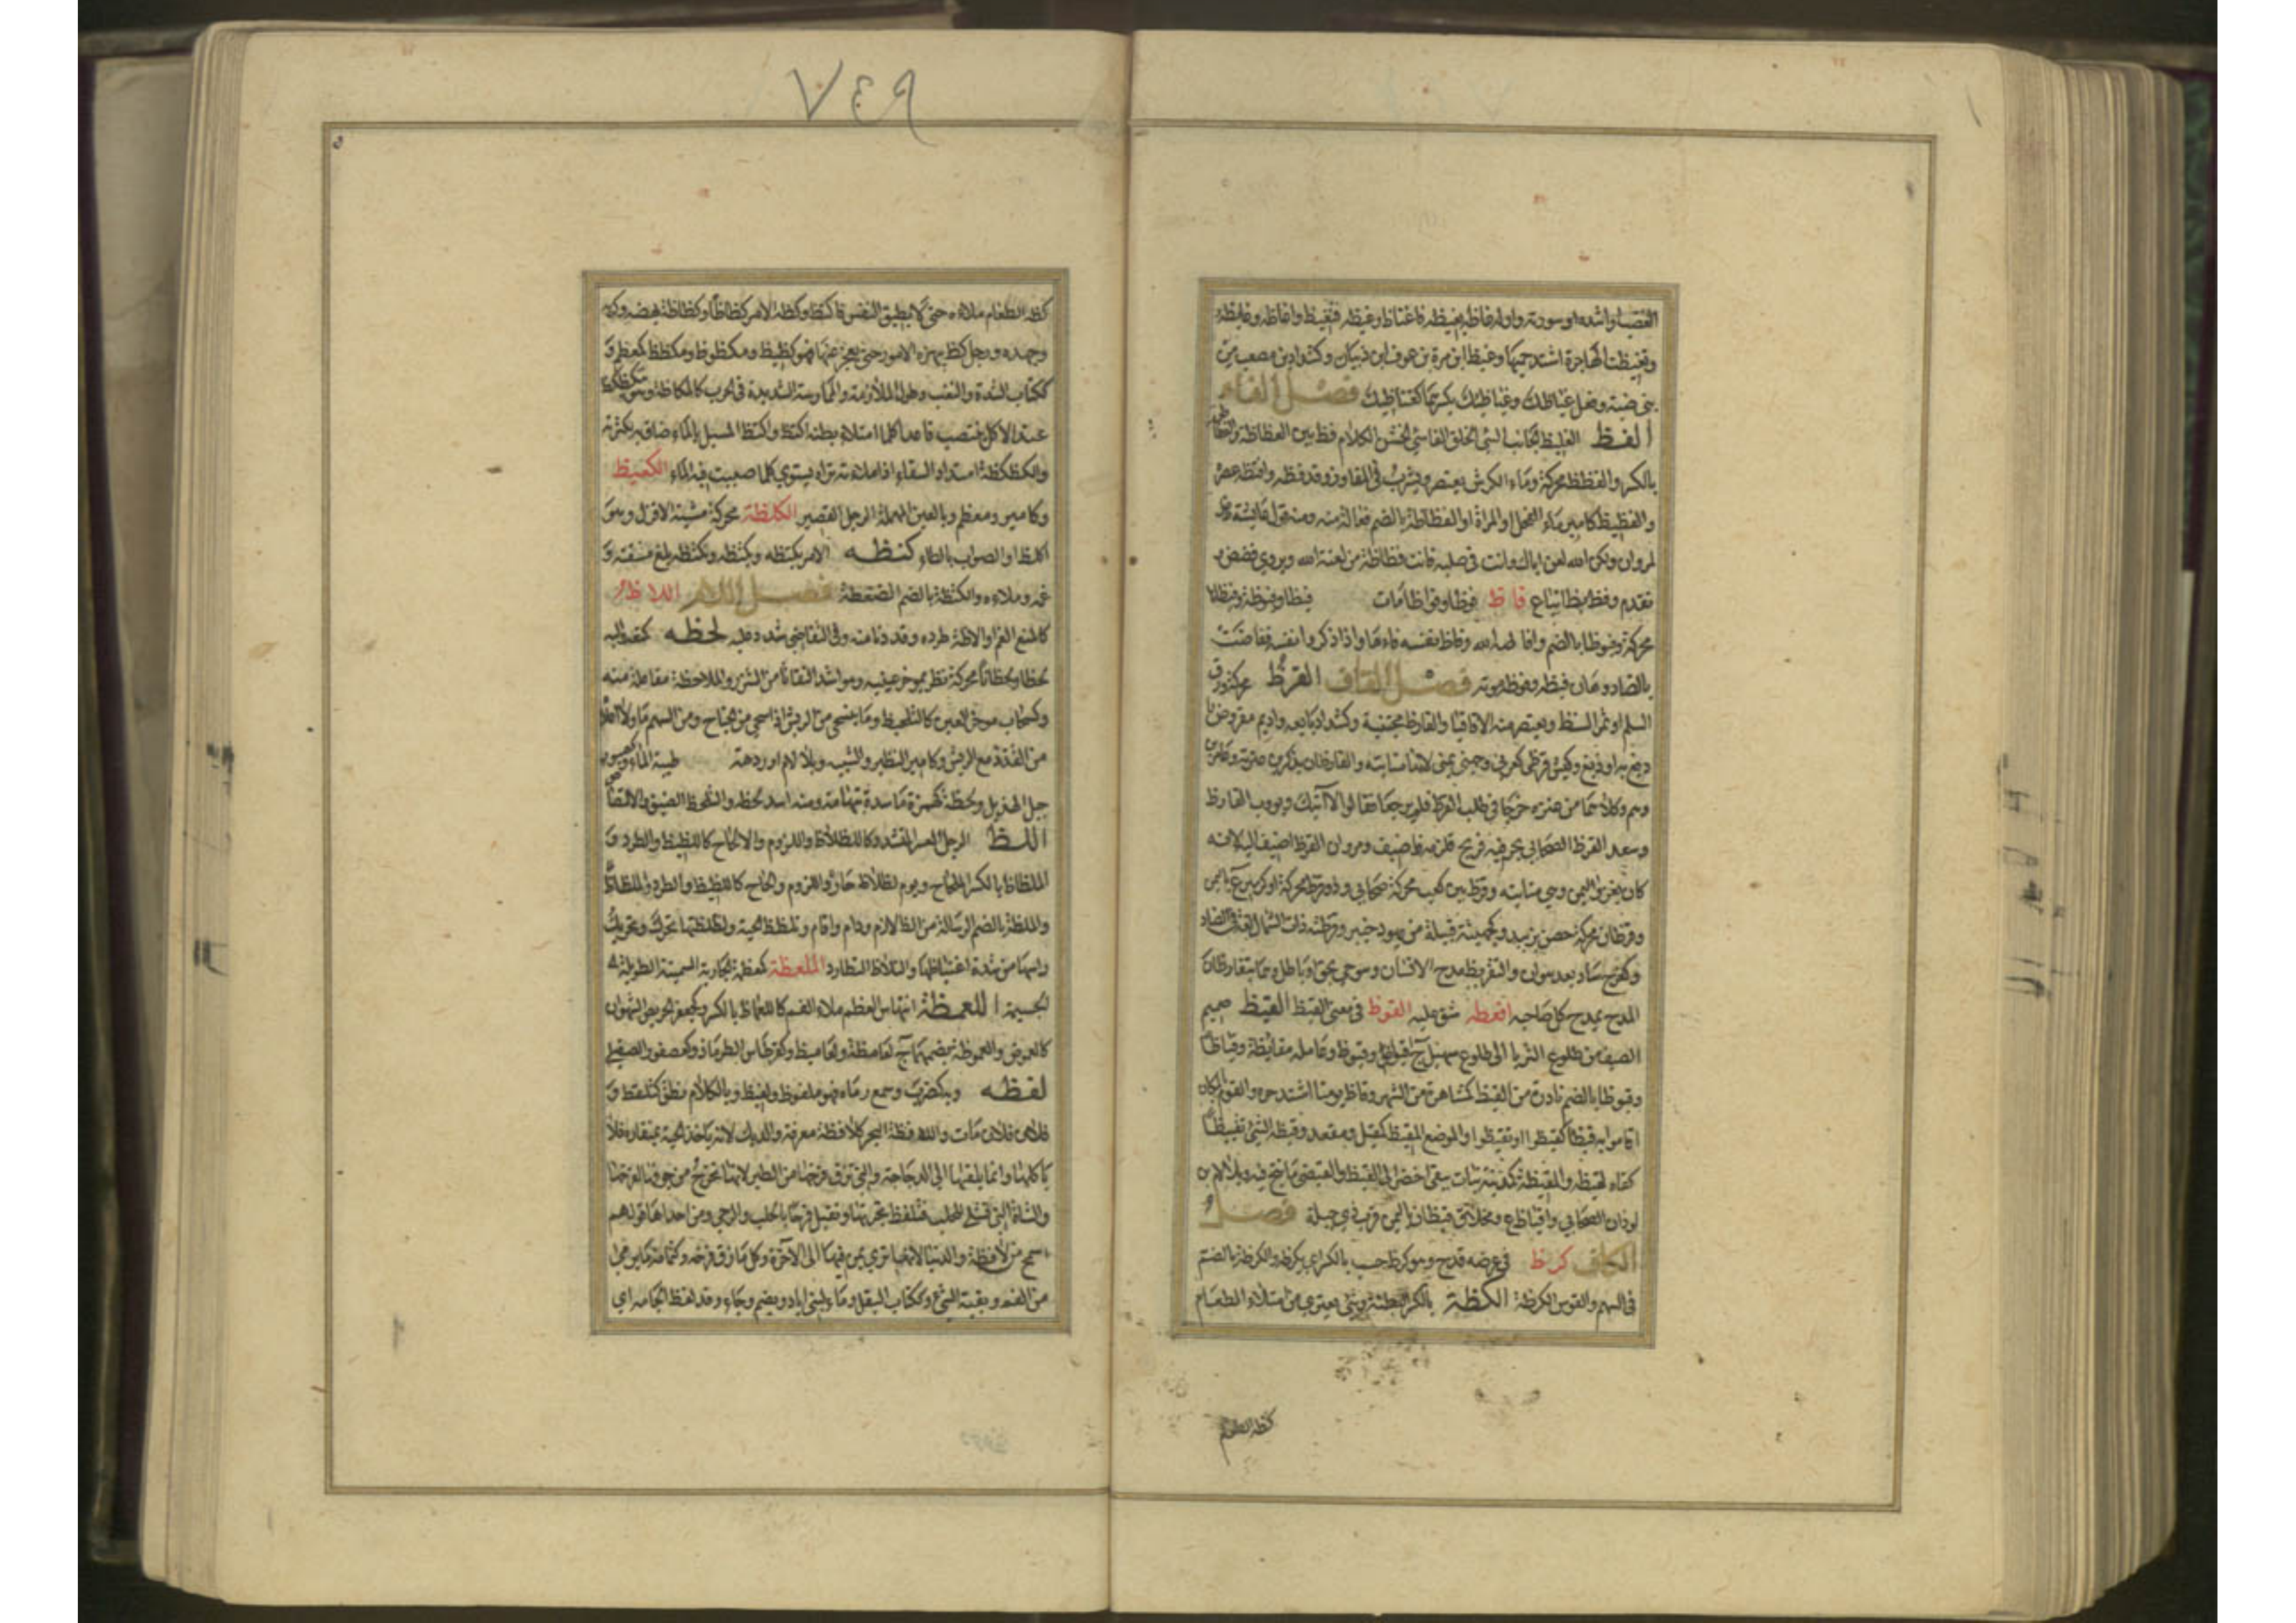 ٧٤٩
الغضب او اشده او سورته واوله غاظه يغيظه فاغتاظ وغيظه فتغيظ واغاظه وغايظه
وتغيظت الهاجرة اشتد حميها وغيظ ابن مرة بن عوف ابن ذبيان وكشداد بن مصعب من
بني ضبة وفعل غياظك وغياظيك بكسرهما كغناظيك فصل الفاء
الفظ الغليظ الجانب السيئ الخلق القاسي الخشن الكلام فظ بين الفظاظة والفظاظ
بالكسر والفظظ محركة وماء الكرش يعتصر ويشرب في المفاوز وقد فظه وافتظه عصره
والفظيظ كامير ماء الفحل او المراة او الفظاظة بالضم فعالة منه ومنه قول عايشة
لمروان ولكن الله لعن اباك وانت في صلبه فانت فظاظة من لعنة الله ويروي فضض
تقدم وفظ بظ اتباع فاظ فوظا وفواظا مات فيظا وفيوظة وفيظانا
محركة وفيوظا بالضم وافاظه الله وفاظ نفسه قاءها واذا ذكروا نفسه ففاضت
بالضاد وحان فيظه وفوظه موته فصل القاف القرظ محركة ورق
السلم او ثمر السنط ويعتصر منه الاقاقيا والقارظ مجتنيه وكشداد بايعه واديم مقروظ
دبغ به او صبغ وكبش قرظي كعربي وجهني يمني لانها منابته والقارظان يذكر بن عنزة وعامر بن
رهم وكلاهما من عنزة خرجا في طلب القرظ فلم يرجعا فقالوا لا آتيك او يؤوب القارظ
وسعد القرظ الصحابي تجر فيه فربح فلزمه فاضيف ومروان القرظ اضيف اليه لانه
كان يغزو اليمن وهي منابته وقرظ بن كعب محركة صحابي وذو قرظ محركة او كزبير ع باليمن
وقرظان محركة حصن بزبيد وكجهينة قبيلة من يهود خيبر وقرظته ذات الشمال لغة في الضاد
وكفرح ساد بعد هوان والتقريظ مدح الانسان وهو حي بحق او باطل وهما يتقارظان
المدح يمدح كل صاحبه اقعظه شق عليه القوظ في معنى القيظ القيظ صميم
الصيف من طلوع الثريا الى طلوع سهيل ج اقياظ وقيوظ وعامله مقايظة وقياظا
وقيوظا بالضم نادرة من القيظ كمشاهرة من الشهر وقاظ يومنا اشتد حره والقوم بالمكان
اقاموا به قيظا كقيظوا او تقيظوا والموضع المقيظ كمقيل ومقعد وقيظه الشيء تقييظا
كفاه لقيظه والمقيظة كمدينة نبات يبقى اخضر الى القيظ والقيظي ما نتج فيه وبلا لام بن
لوذان الصحابي واقياظ ع ومخلاف قيظان باليمن قرب ذي جبلة فصل
الكاف كرظ في عرضه قدح وهو كرظ حسب بالكسر اي يكرظه والكرظة بالضم
في السهم والقوس الكرظة الكظة بالكسر البطنة وشيء يعتري من امتلاء الطعام
كظه الطعام
كظه الطعام ملأه حتى لا يطيق النفس فاكتظ وكظه الامر كظاظا وكظاظة بهضه وكربه
وجهده ورجل كظ بهزه الامور حتى يعجز عنها فهو كظيظ ومكظوظ ومكظظ كمعظم و
ككتاب الشدة والتعب وطول الملازمة والممارسة الشديدة في الحرب كالمكاظة وهو يتكظكظ
عند الاكل ينتصب قاعدا كلما امتلاء بطنه اكتظ واكتظ المسيل بالماء ضاق به بكثرته
والكظكظة امتداد السقاء اذا ملاءته تراه يستوي كلما صببت فيه الماء الكعيظ
وكامير ومعظم وبالعين المهملة الرجل القصير الكلظة محركة مشية الاقزل وهو
اكلظ او الصواب بالطاء كنظه الامر يكنظه ويكنظه وتكنظه بلغ مشقته و
غمه وملاءه والكنظة بالضم الضغطة فصل اللام اللاظ
كالمنع الغم او لاظه طرده وقد دنا منه وفي التقاضي شدد عليه لحظه كمنعه واليه
لحظا ولحظانا محركة نظر بمؤخر عينيه وهو اشد التفاتا من الشزر والملاحظة مفاعلة منه
وكسحاب مؤخر العين كالتلحيظ وما ينسحي من الريش اذا سحي من الجناح ومن السهم ما ولي اعلاه
من القذذ مع الريش وكامير النظير والشبيه وبلا لام او ردهة طيبة الماء وكصبور
جبل لهذيل ولحظة كهمزة مأسدة بتهامة ومنه اسد لحظة والتلحظ الضيق والالتصاق
اللظ الرجل العسر المتشدد كاللظلاظ واللزوم والالحاح كاللظيظ والطرد و
الملظاظ بالكسر الملحاح ويوم لظلاظ حار واللزوم والحاح كاللظيظ والطرد والملظاظ
والملظة بالضم الرسالة من الظ لازم ودام واقام وتلظلظ الحية ولظلظتها تحرك وتحريك
راسها من شدة اغتياظها والتلاظ التطارد الملعظة كمعظمة الجارية السمينة الطويلة
الجسيمة اللعمظة انتهاس العظم ملاء الفم كاللعماظ بالكسر وكجعفر الحريص الشهوان
كاللعموظ واللعموظة بضمهما ج لعامظة ولعاميظ وكقرطاس الطرماذ وكعصفور الطفيلي
لفظه وبه كضرب وسمع رماه فهو ملفوظ ولفيظ وبالكلام نطق كتلفظ و
فلان فلان مات واللافظة البحر كلافظة معرفة والديك لانه ياخذ الحبة بمنقاره فلا
ياكلها وانما يلقيها الى الدجاجة والتي تزق فرخها من الطير لانها تخرج من جوفها لفرخها
والشاة التي تشلى للحلب فتلفظ بجرتها وتقبل فرحا بالحلب والرحى ومن احداها قولهم
اسمح من لافظة والدنيا لانها ترمي بمن فيها الى الآخرة وكل ما زق فرخه وكثمامة ما يرمى
من الفم وبقية الشيء وككتاب البقل وماء لبني اياد ويضم وجاء وقد لفظ لجامه اي